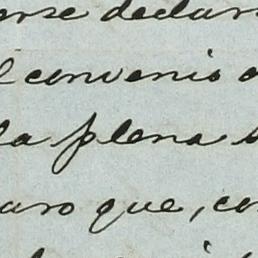 erse declar
l convenio
la plena s
uro que, co